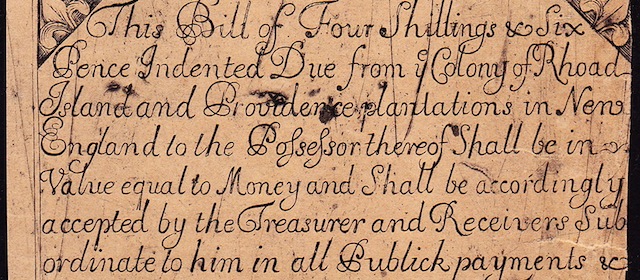 This Bill of Four Shillings & Six
Pence Indented Due from ỹ Colony of Rhoad
Island and Providence plantations in New
England to the Poſseſsor thereof Shall be in
Value equal to Money and Shall be accordingly
accepted by the Treasurer and Receivers Sub
ordinate to him in all Publick payments &